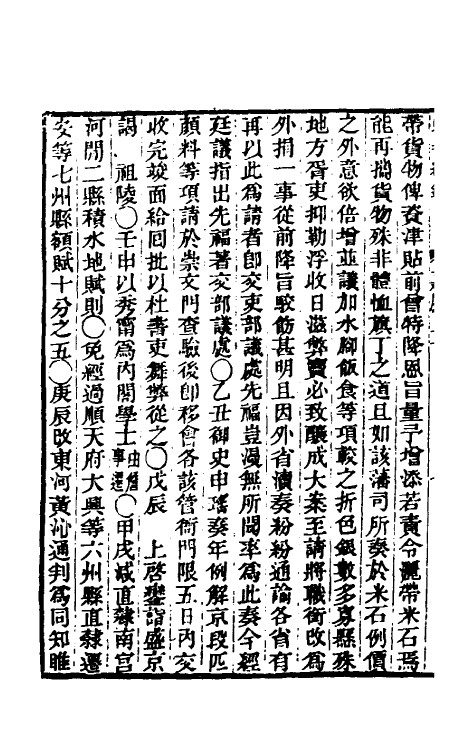 帶貨物俾資津貼前曾特降恩旨量予增添若責令灑帶米石焉
能再攜貨物殊非體恤旗丁之道且如該藩司所奏於米石例價
之外意欲倍增並議加水腳飯食等項較之折色銀數多寡懸殊
地方胥吏抑勒浮收日滋弊竇必致釀成大案至請將職銜改爲
外捐一事從前降旨駮飭甚明且因外省瀆奏紛紛通諭各省有
再以此爲請者卽交吏部議處先福豈漫無所聞率爲此奏今經
廷議指出先福著交部議處○乙丑御史申瑤奏年例解京段匹
顏料等項請於崇文門查驗後卽移會各該管衙門限五日內交
收完竣面給回批以杜書吏舞弊從之○戊辰　上啓鑾詣盛京
謁　祖陵○壬申以秀甯爲內閣學士由詹事遷○甲戌減直隸南宮
河閒二縣積水地賦則○免經過順天府大興等六州縣直隸遷
安等七州縣額賦十分之五○庚辰改東河黃沁通判爲同知睢